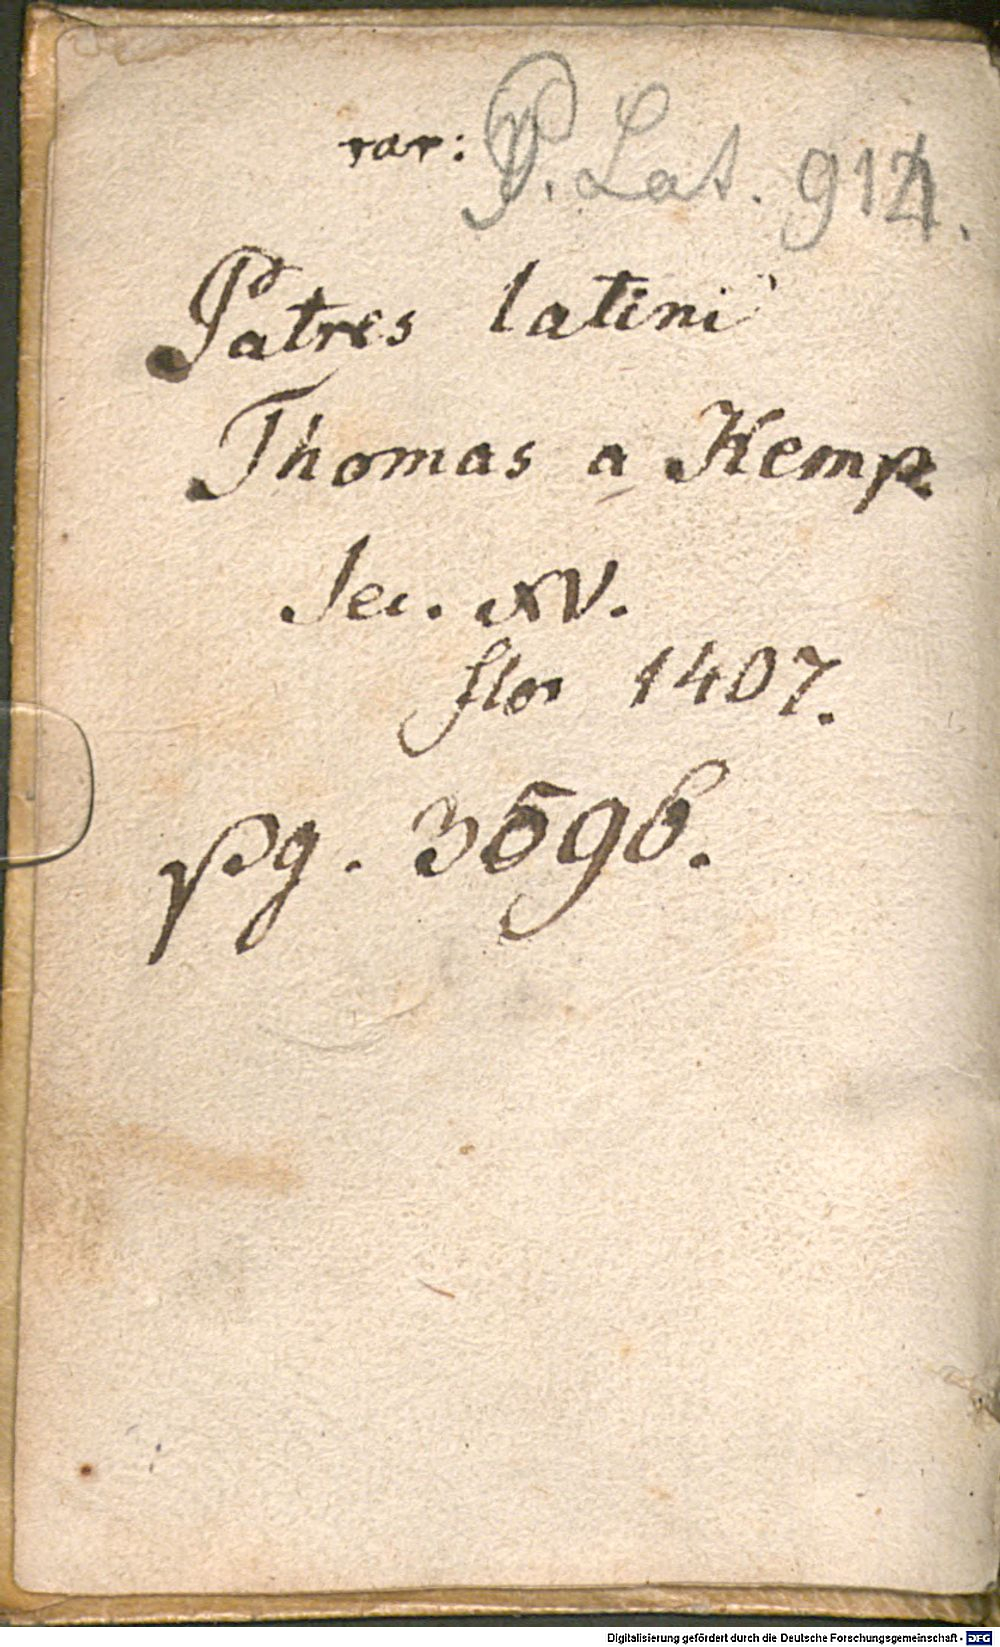 rar: P. Lat. 912.
Patres latini
Thomas a Kemp.
Sec. XV.
flor 1407.
pg. 3596.
Digitalisierung gefördert durch die Deutsche Forschungsgemeinschaft - DFG